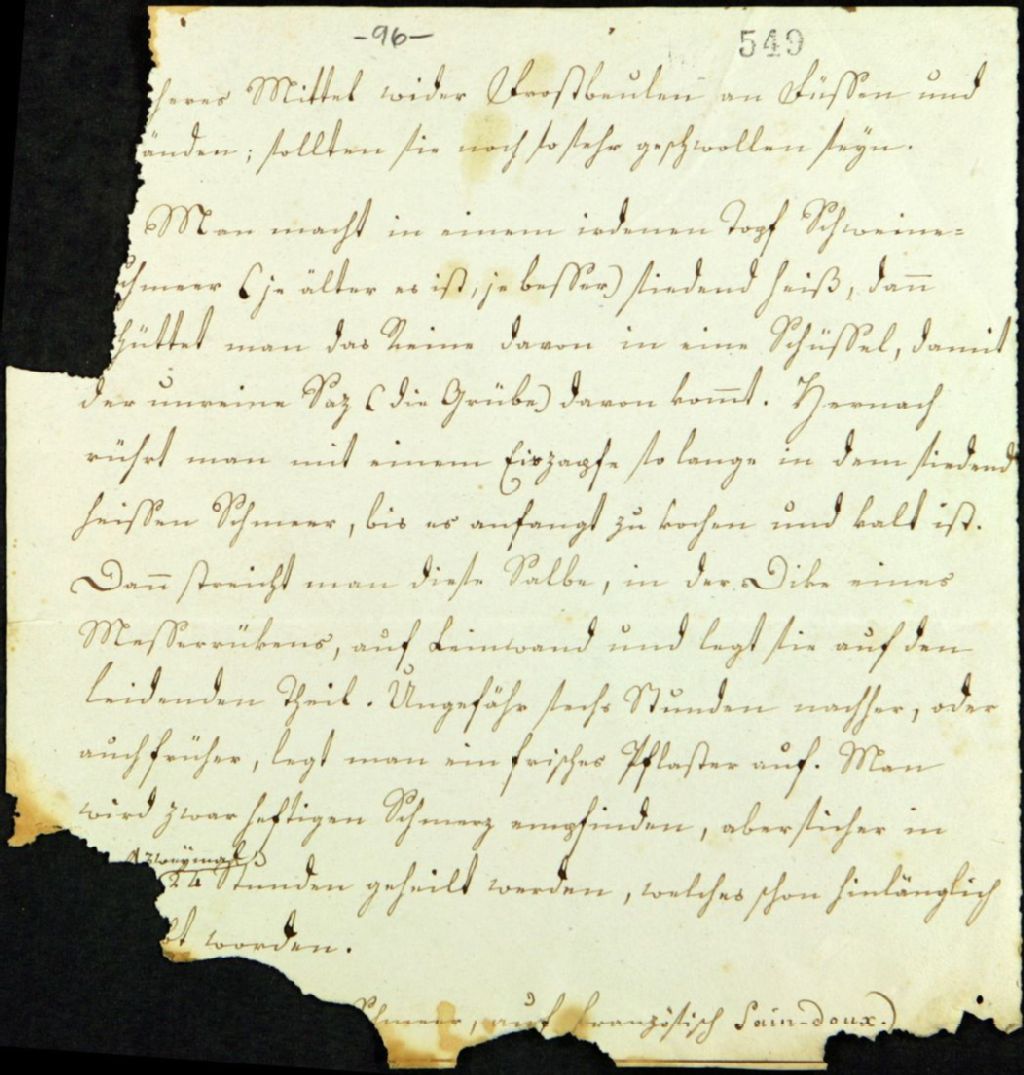 -96-
549
heres Mittel wider Frostbeulen an Füssen und
änden; sollten sie noch so sehr geschwollen seyn.
Man macht in einem irdenen Topf Schweine=
chmeer (je älter es ist, je besser) siedend heiß, dann
hüttet man das Reine davon in eine Schüssel, damit
der unreine Saz (die Grübe) davon kommt. Hernach
rührt man mit einem Eiszapfe so lange in dem siedend
heissen Schmeer, bis es anfangt zu kochen und kalt ist.
Dann streicht man diese Salbe, in der Dike eines
Messerrükens, auf Leinwand und legt sie auf den
leidenden Theil. Ungefähr sechs Stunden nachher, oder
auch früher, legt man ein frisches Pflaster auf. Man
wird zwar heftigen Schmerz empfinden, aber sicher in
zweymal
24 Stunden geheilt werden, welches schon hinlänglich
bt worden.
Schmeer, auf französisch Sain-doux.)